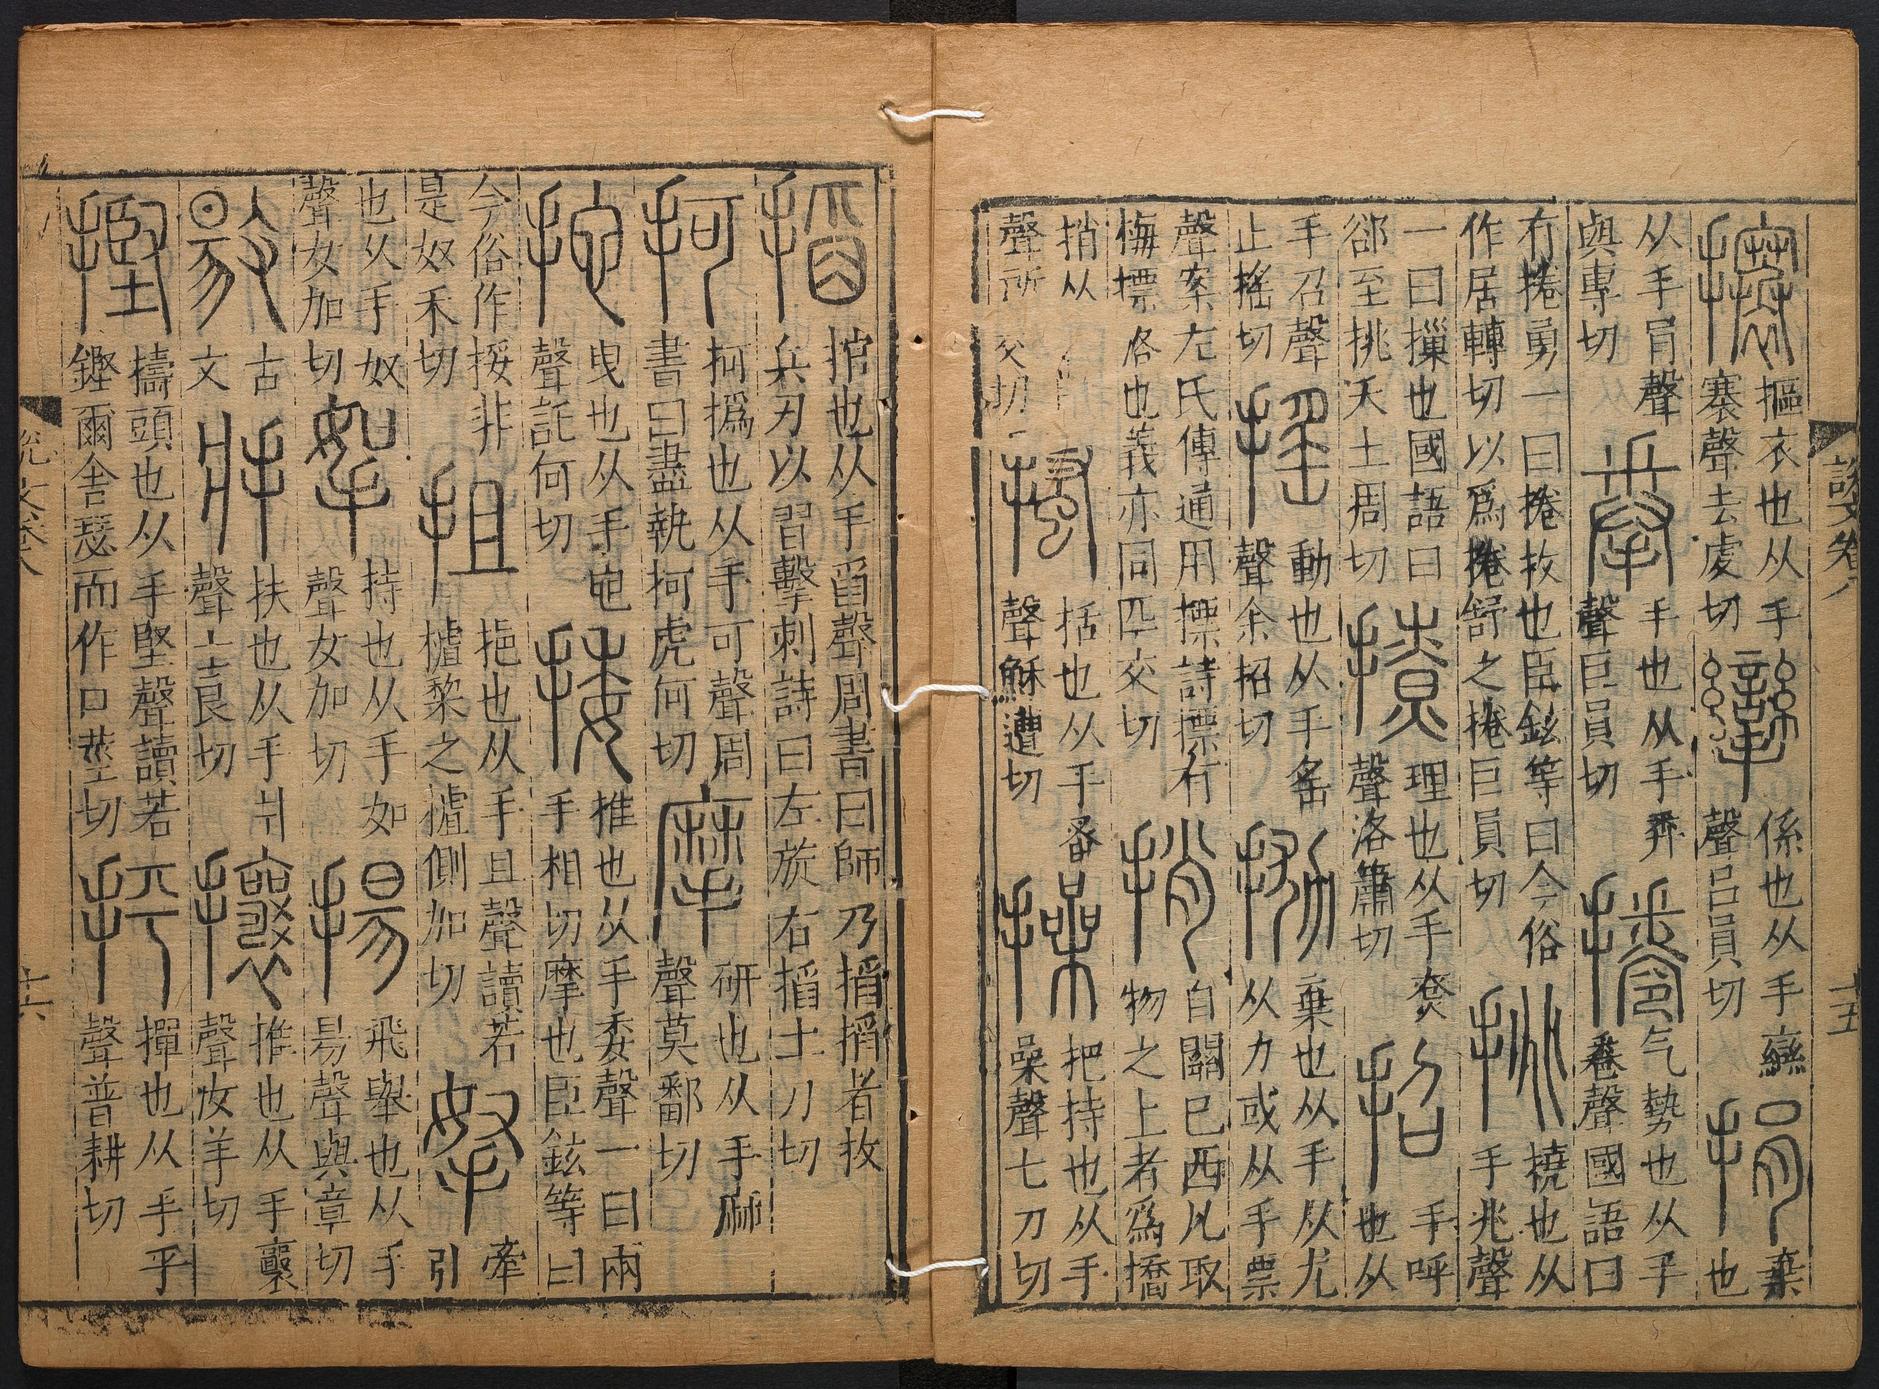 摳衣也从手
寒聲去虔切
係也从手䜌
聲呂員切
棄
也
从手肙聲
與專切
手也从手𢍏
聲巨員切
气勢也从手
卷聲國語曰
冇捲勇一曰捲收也臣鉉等曰今俗
作居轉切以爲捲舒之捲巨員切
撓也从
手兆聲
一曰摷也國語曰
郤至挑天土周切
理也从手尞
聲洛蕭切
手呼
也从
手召聲
止搖切
動也从手䍃
聲余招切
棄也从手从尤
从力或从手票
聲案左氏傳通用摽詩摽有
梅摽落也義亦同匹交切
自關已西凡取
物之上者爲撟
捎从
聲所
交切
括也从手蚤
聲穌遭切
把持也从手
喿聲七刀切
說文卷八
十五
掐也从手舀聲周書曰師乃搯搯者㧞
兵刃以習擊刺詩曰左旋右搯土刀切
柯撝也从手可聲周
書曰盡執柯虎何切
研也从手麻
聲莫鄱切
曳也从手㐌
聲託何切
推也从手委聲一曰兩
手相切摩也臣鉉等曰
今俗作挼非
是奴禾切
挹也从手且聲讀若
樝棃之樝側加切
牽
引
也从手奴
聲女加切
持也从手如
聲女加切
飛舉也从手
昜聲與章切
古
文
扶也从手爿
聲七良切
推也从手襄
聲汝羊切
擣頭也从手堅聲讀若
鏗爾舍瑟而作口莖切
撣也从手乎
聲普耕切
說文卷八
十六